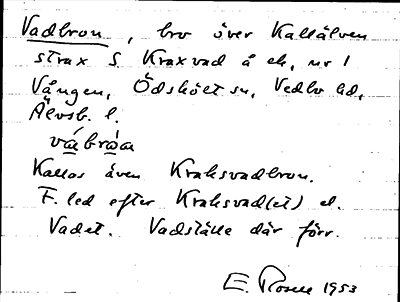 Vadbron, bro över Kallälven
strax S Kraxvad å ek, nr 1
Vången, Ödsköl sn, Vedbo hd,
Älvsb. l.
vábròa
Kallas även Kraksvadbron.
F. led efter Kraksvad(et) el.
Vadet. Vadställe där förr.
E. Rosell 1953